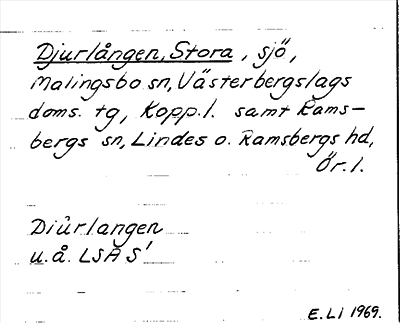 Djurlången, Stora, sjö,
Malingsbo sn, Västerbergslags
doms. tg, Kopp. l. samt Rams-
bergs sn, Lindes o. Ramsbergs hd,
Ör. l.
Diŭrlangen
u. å. LSA S'
E. Li 1969.